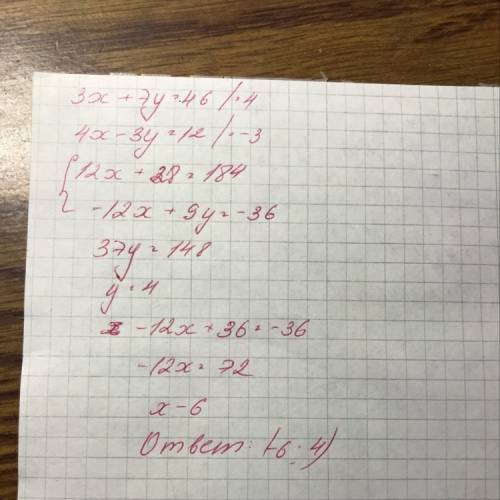 3x + 7y = 46 / · 4
4x - 3y = 12 / · -3
12x + 28 = 184
-12x + 9y = -36
37y = 148
y = 4
-12x + 36 = -36
-12x = 72
x - 6
Ответ: (-6 ; 4)